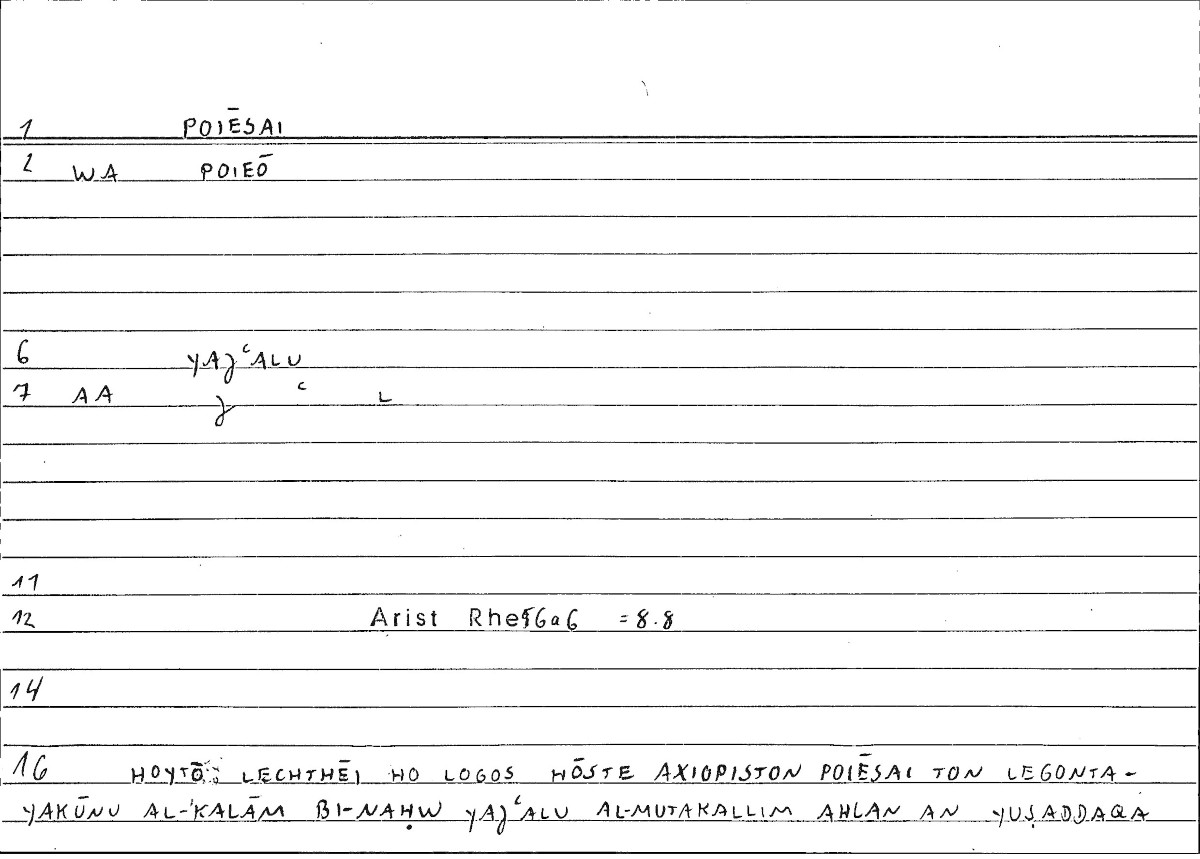 1 POIĒSAI
2 WA POIEŌ
6 YAJʿALU
7 AA J ʿ L
11
12 Arist Rhe 56a6 =8.8
14
16 HOYTŌ LECHTHĒI HO LOGOS HŌSTE AXIOPISTON POIĒSAI TON LEGONTA-
YAKŪNU AL-KALĀM BI-NAḤW YAJʿALU AL-MUTAKALLIM AHLAN AN YUṢADDAQA